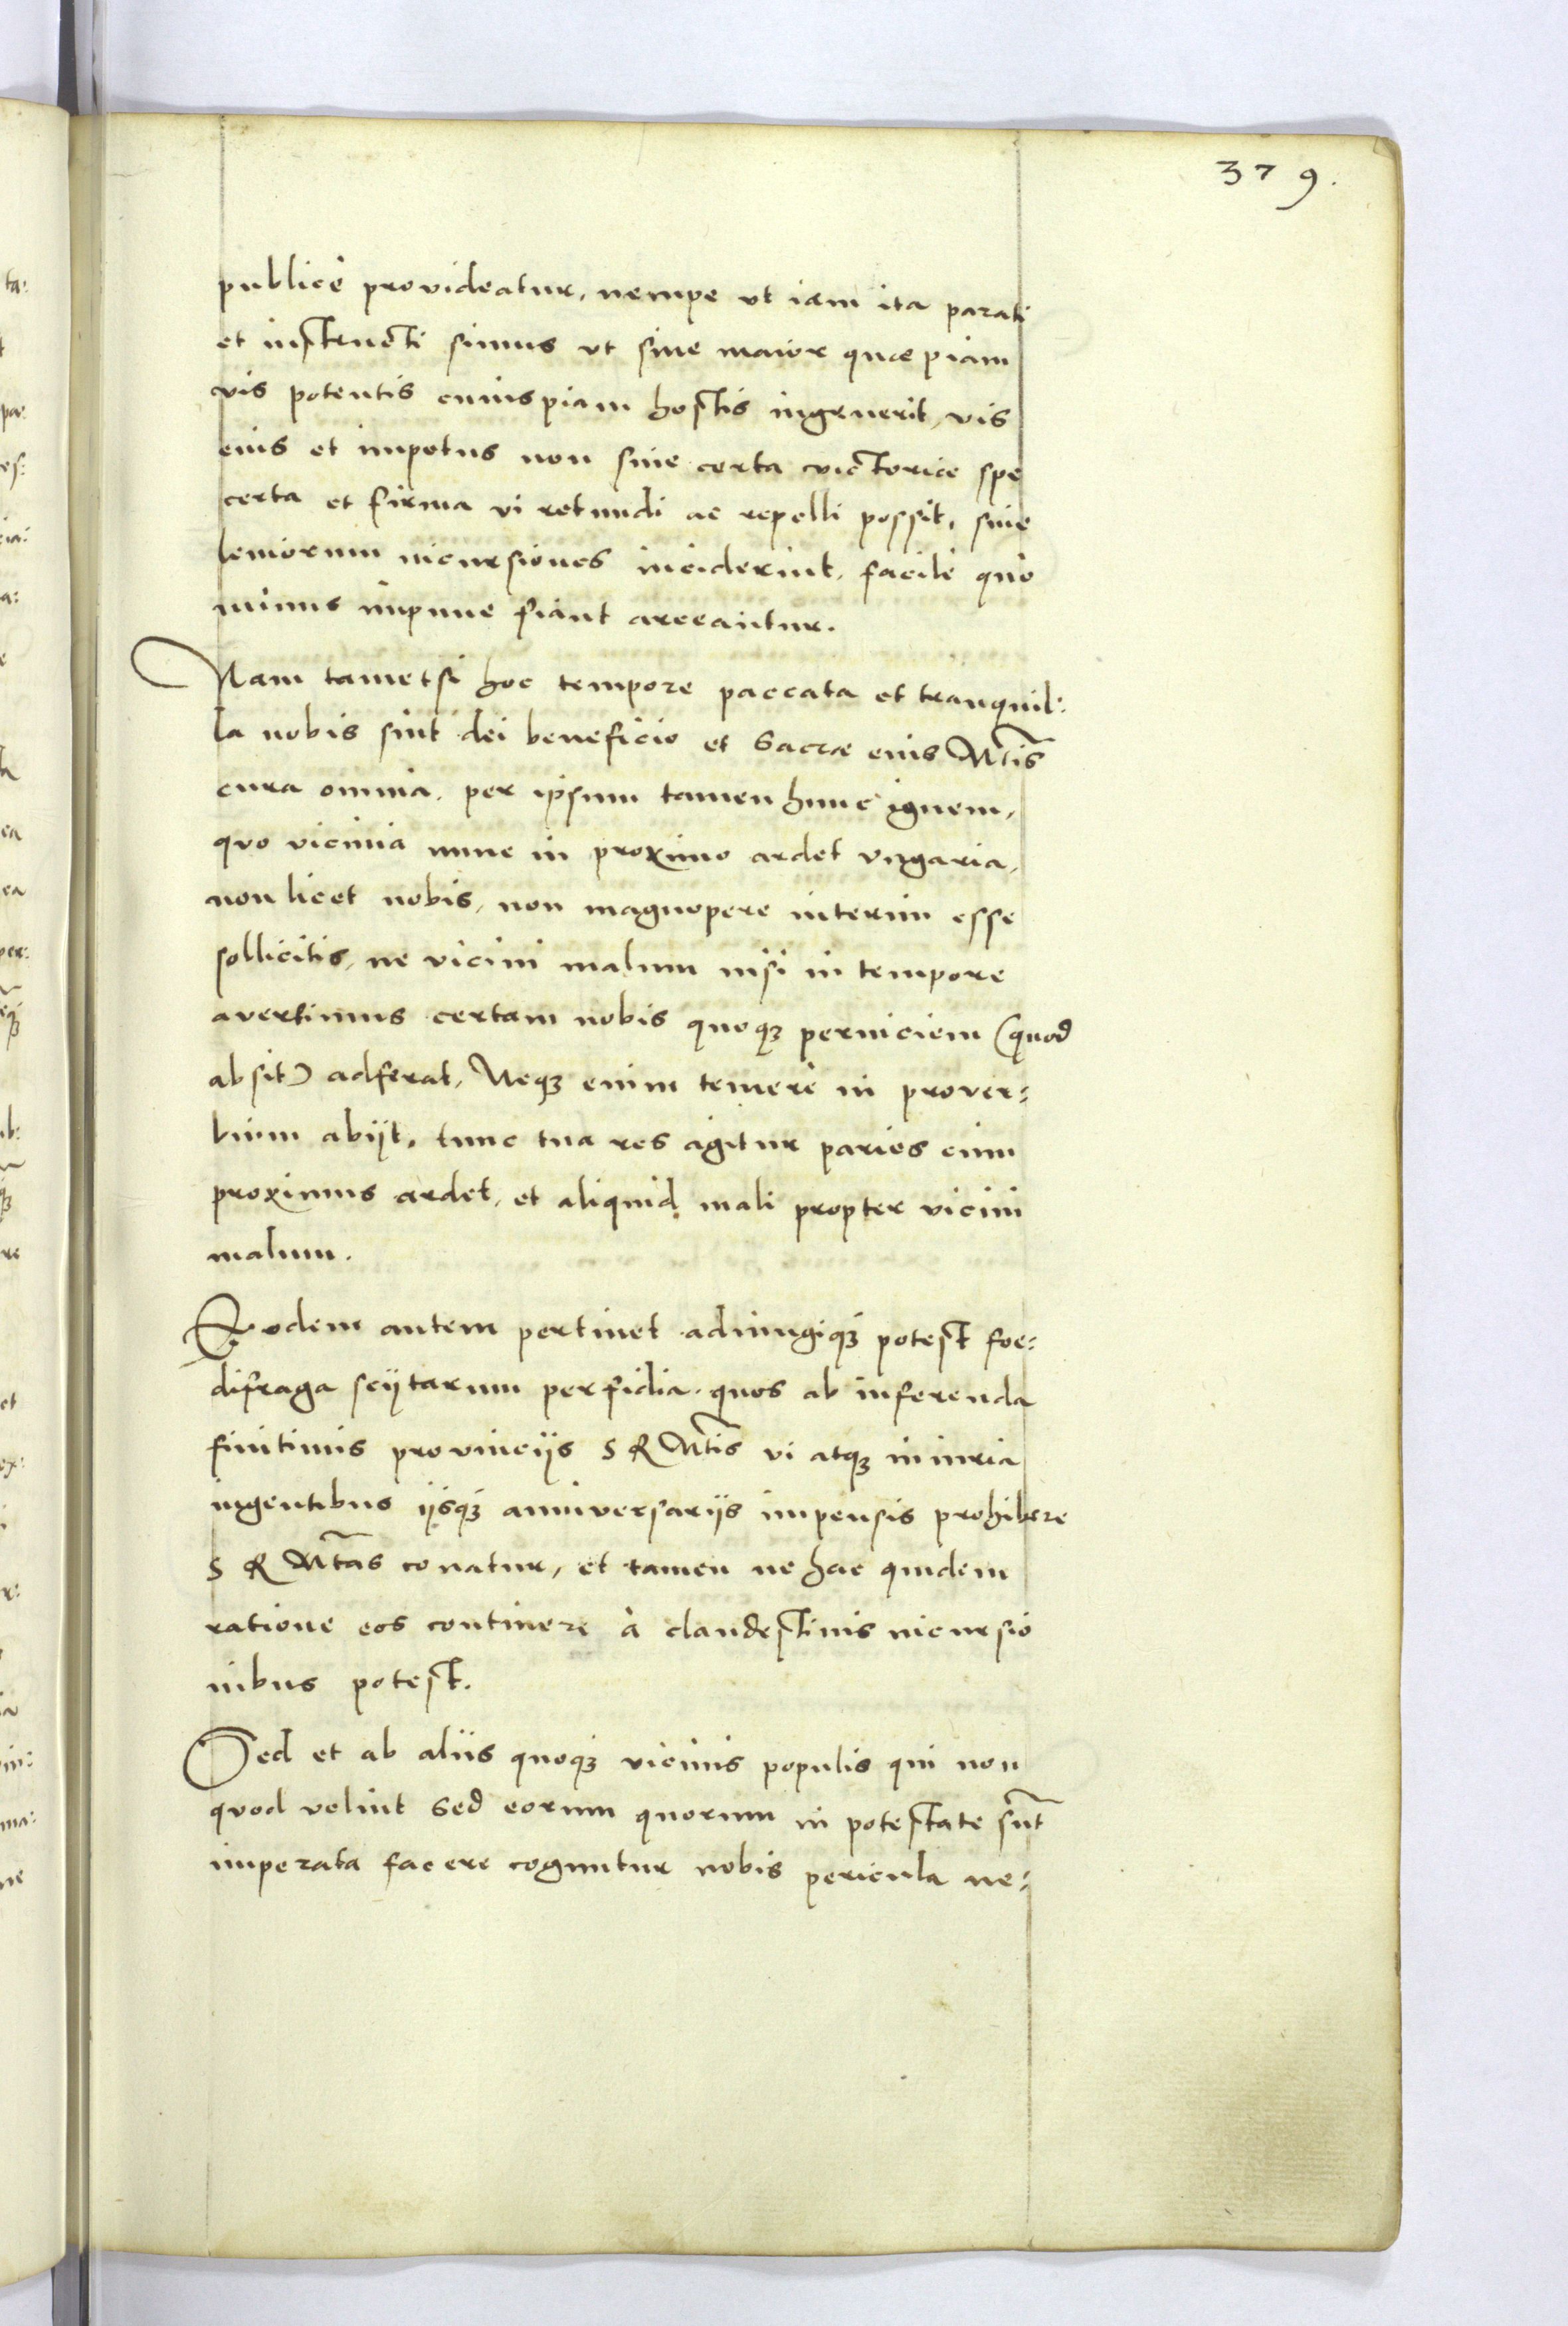 379.
publicè provideatur, nempe ut iam ita parati
et instructi simus ut sive maior quæpiam
vis potentis cuiuspiam hostis ingruerit, vis
eius et impetus non sine certa victoriæ spe
certa et firma vi retundi ac repelli possit, sive
leviorum incursiones inciderint, facilè quò
minus impune fiant arceantur.
Nam tametsi hoc tempore paccata et tranquil:
la nobis sint dei beneficio et Sacræ eius Mtis
cura omnia, per ipsum tamen hunc ignem,
quo vicinia nunc in proximo ardet Ungaria,
non licet nobis, non magnopere interim esse
sollicitis, ne vicini malum nisi in tempore
avertimus certam nobis quoqꝫ perniciem (quod
absit) adferat, Neqꝫ enim temerè in prover:
bium abijt, tunc tua res agitur paries cum
proximus ardet, et aliquid mali propter vicini
malum.
Eodem autem pertinet adiungiqꝫ potest foe:
difraga scijtarum perfidia, quos ab inferenda
finitimis provincijs S R Mtis vi atqꝫ iniuria
ingentibus ijsqꝫ anniversarijs impensis prohibere
S R Mtas conatur, et tamen ne hac quidem
ratione eos continere à clandestinis incursio
nibus potest.
Sed et ab aliis quoqꝫ vicinis populis qui non
quod velint sed eorum quorum in potestate sut
imperata facere coguntur nobis pericula ne: